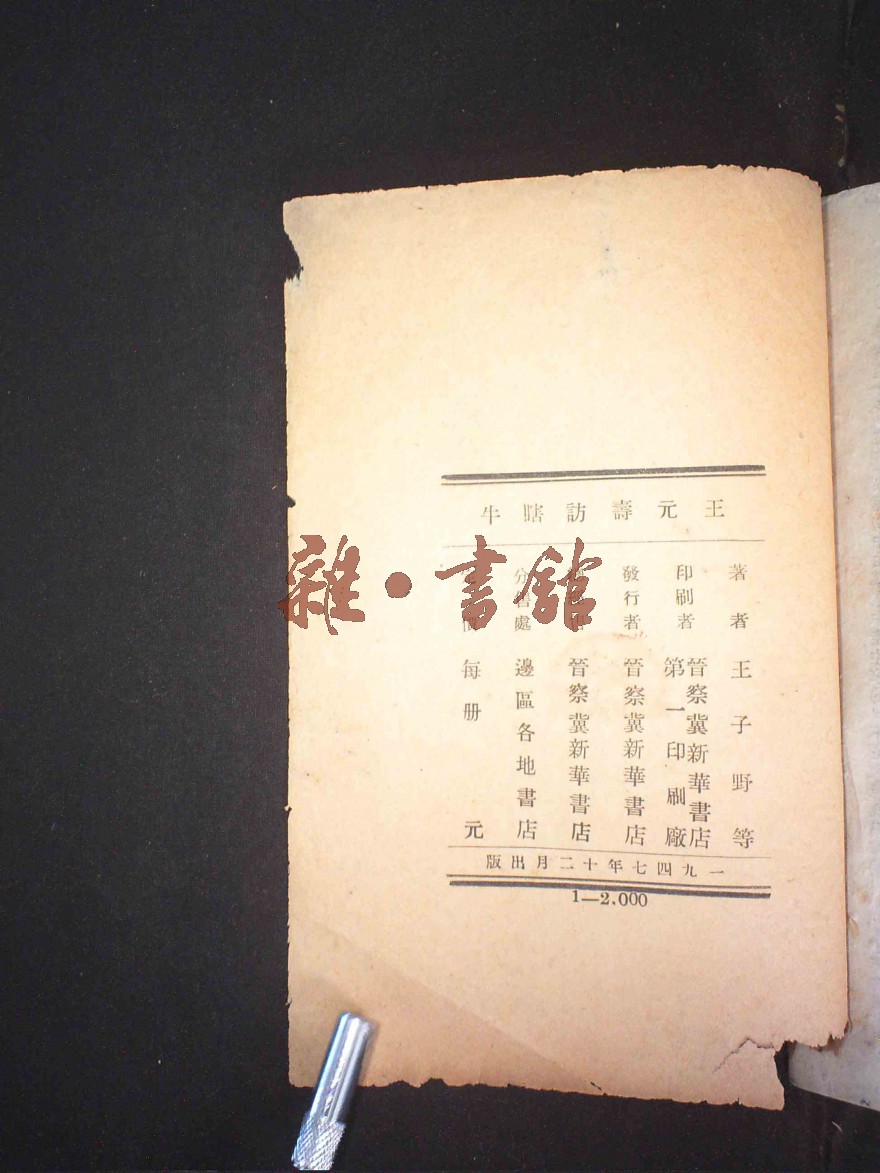 王元壽訪瞎牛
著者 王子野等
印刷者 晉察冀新華書店
第一印刷廠
發行者 晉察冀新華書店
晉察冀新華書店
分售處 邊區各地書店
價 每册 元
一九四七年十二月出版
1—2.000
雜·書館